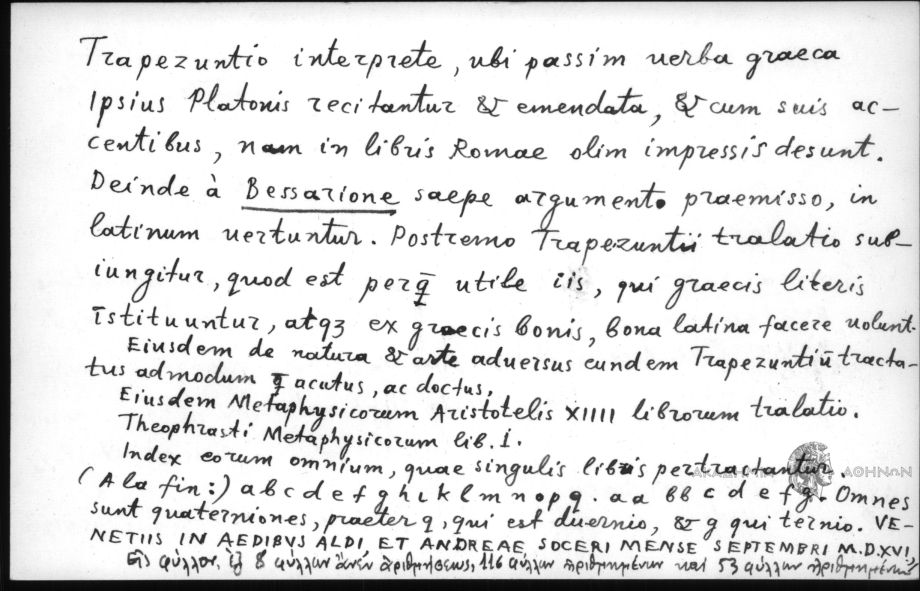 Trapezuntio interprete, ubi passim uerba graeca
Ipsius Platonis recitantur & emendata, & cum suis ac–
centibus, nam in libris Romae olim impressis desunt.
Deinde à Bessarione saepe argumento praemisso, in
latinum uertuntur. Postremo Trapezuntii tralatio sub–
iungitur, quod est perq̄ utile iis, qui graecis literis
īstituuntur, atqꝫ ex graecis bonis, bona latina facere uolunt.
Eiusdem de natura & arte aduersus eundem Trapezuntiū tracta–
tus admodum q̄ acutus, ac doctus,
Eiusdem Metaphysicorum Aristotelis XIIII librorum tralatio.
Theophrasti Metaphysicorum lib. I.
Index eorum omnium, quae singulis libris pertractantur.
ΑΘΗΝΩΝ
(A la fin:) a b c d e f g h i k l m n o p q . aa bb c d e f g. Omnes
sunt quaterniones, praeter q, qui est duernio, & g qui ternio. VE–
NETIIS IN AEDIBVS ALDI, ET ANDREAE SOCERI MENSE SEPTEMBRI M.D.XVI,
Εἰς φύλλον, ἐξ 8 φύλλων ἄνευ ἀριθμήσεως, 116 φύλλων ἠριθμημένων καὶ 53 φύλλων ἠριθμημένων